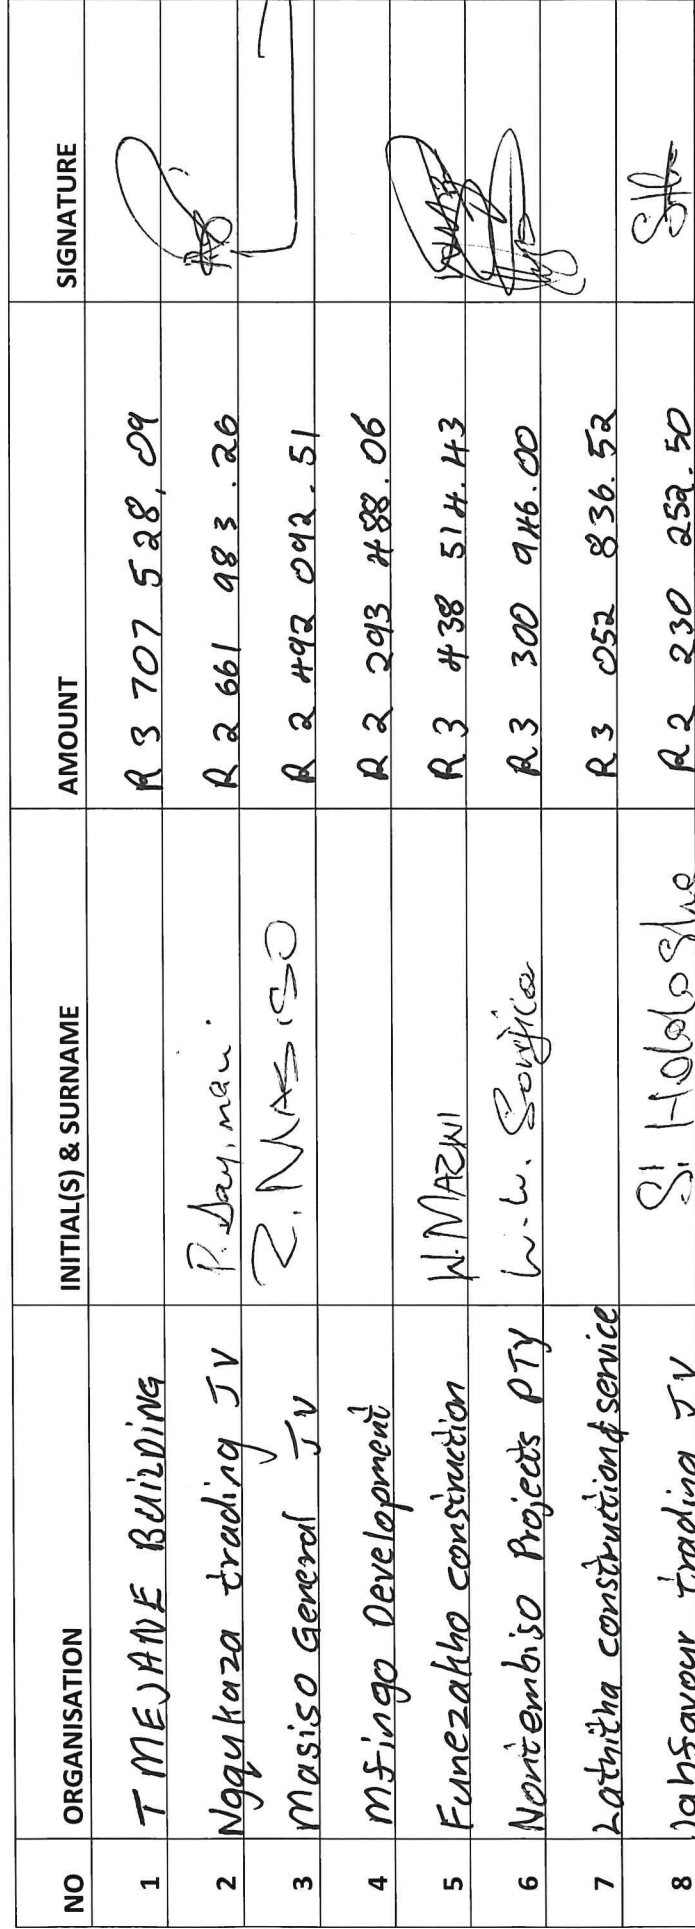 NO ORGANISATION INITIAL(S) & SURNAME AMOUNT SIGNATURE
1 T MEJANE BUILDING R 3 707 528,09
2 Nqqukaza trading JV P. Dayimani R 2 661 983.26
3 Masiso General JV Z. MASISO R 2 492 092.51
4 Mfingo Development R 2 293 488.06
5 Funezakho construction W.MAZWI R 3 438 514.43
6 Nontembiso Projects PTY R 3 300 946.00
7 Lathitha construction & service R 3 052 836.52
8 Jahfavour trading JV R 2 230 252.50